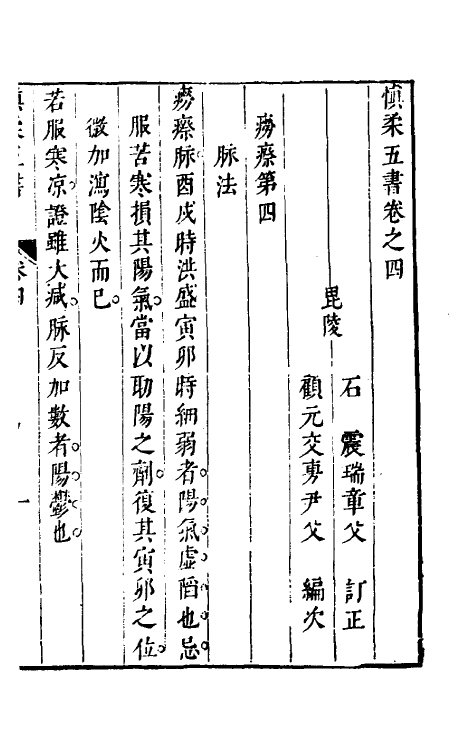 慎柔五書卷之四
毘陵
石　震瑞章父　訂正
顧元交㽔尹父　編次
癆瘵第四
脉法
癆瘵脉酉戌時洪盛寅卯時細弱者。陽氣虛陷也。忌
服苦寒損其陽氣。當以助陽之劑。復其寅卯之位。
微加瀉陰火而已。
若服寒凉。證雖大減。脉反加數者。陽鬱也。